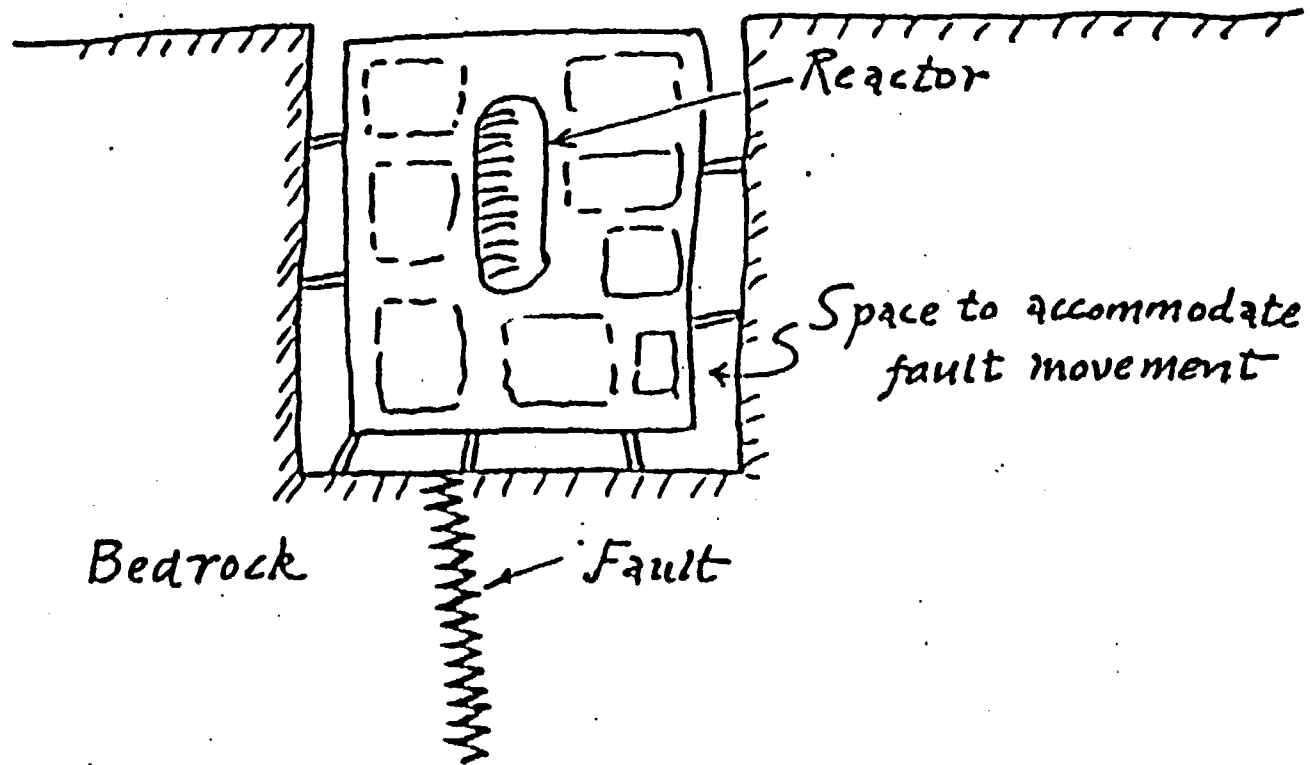 Reactor
Space to accommodate
fault movement
Bedrock
Fault